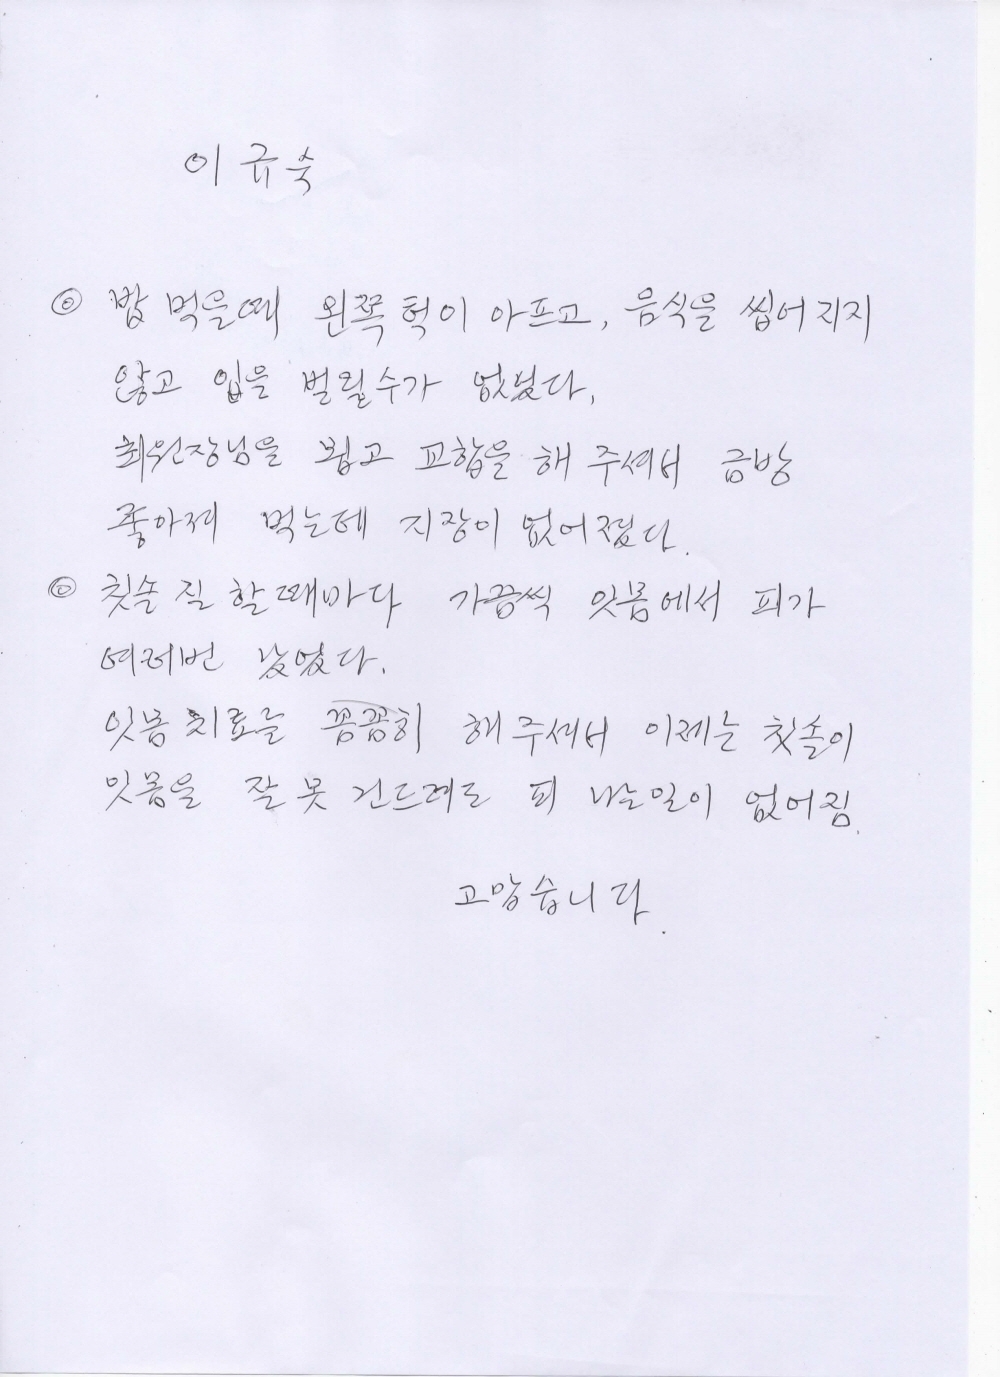 이규숙
◎ 밥 먹을때 왼쪽 턱이 아프고, 음식을 씹어지지
않고 입을 벌릴수가 없었다.
최원장님을 뵙고 교합을 해 주셔서 금방
좋아져 먹는데 지장이 없어졌다.
◎ 칫솔질 할때마다 가끔씩 잇몸에서 피가
여러번 났었다.
잇몸 치료를 꼼꼼히 해주셔서 이제는 칫솔이
잇몸을 잘못 건드려도 피 나는일이 없어짐.
고맙습니다.